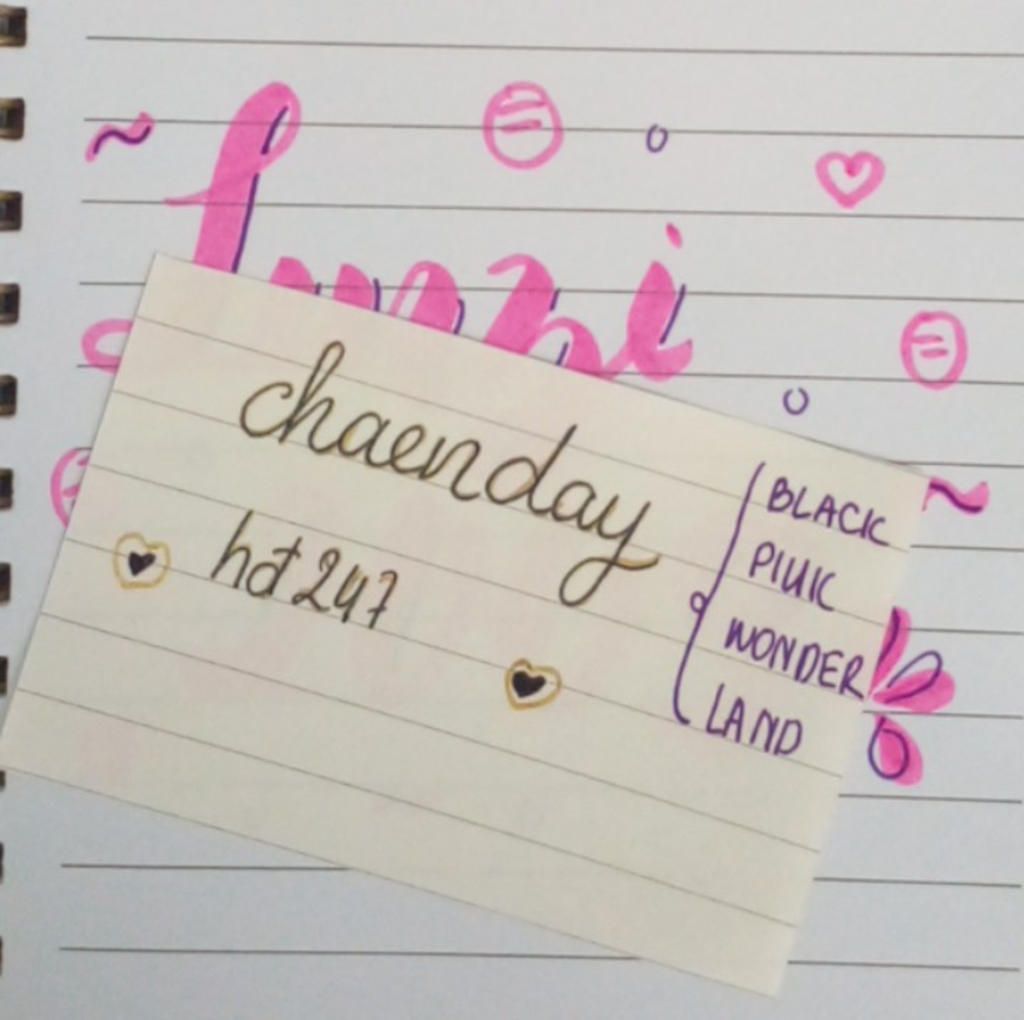 chaenday
hot247
BLACK
PINK
WONDER
LAND